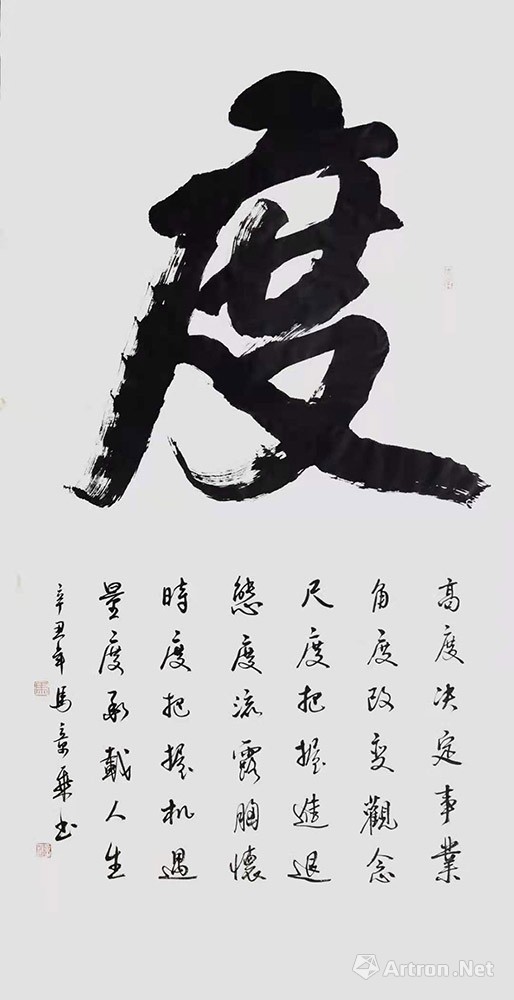 度
高度决定事業
角度改变觀念
尺度把握進退
態度流露胸懷
時度把握机遇
量度承載人生
辛丑年馬景乘书
Artron.Net